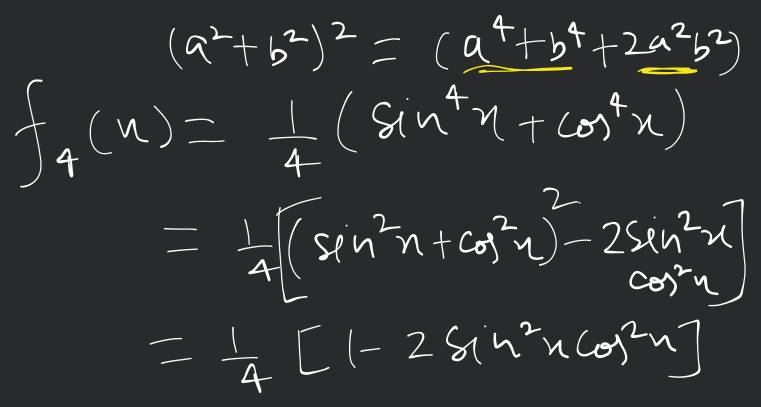 (a²+b²)² = (a⁴+b⁴+2a²b²)
f₄(x) = 1/4 (sin⁴x + cos⁴x)
= 1/4 [(sin²x + cos²x)² - 2sin²x cos²x]
= 1/4 [1 - 2 sin²x cos²x]